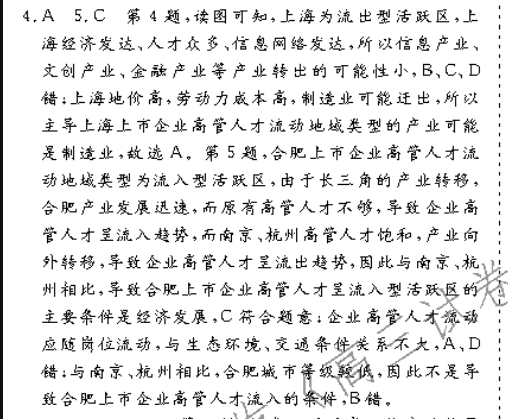 4.A 5.C 第4题,读图可知,上海为流出型活跃区,上
海经济发达、人才众多、信息网络发达,所以信息产业、
文创产业、金融产业等产业转出的可能性小,B、C、D
错;上海地价高,劳动力成本高,制造业可能迁出,所以
主导上海上市企业高管人才流动地域类型的产业可能
是制造业,故选A。第5题,合肥上市企业高管人才流
动地域类型为流入型活跃区,由于长三角的产业转移,
合肥产业发展迅速,而原有高管人才不够,导致企业高
管人才呈流入趋势,而南京、杭州高管人才饱和,产业向
外转移,导致企业高管人才呈流出趋势,因此与南京、杭
州相比,导致合肥上市企业高管人才呈流入型活跃区的
主要条件是经济发展,C符合题意;企业高管人才流动
应随岗位流动,与生态环境、交通条件关系不大,A、D
错;与南京、杭州相比,合肥城市等级较低,因此不是导
致合肥上市企业高管人才流入的条件,B错。
《高三试卷